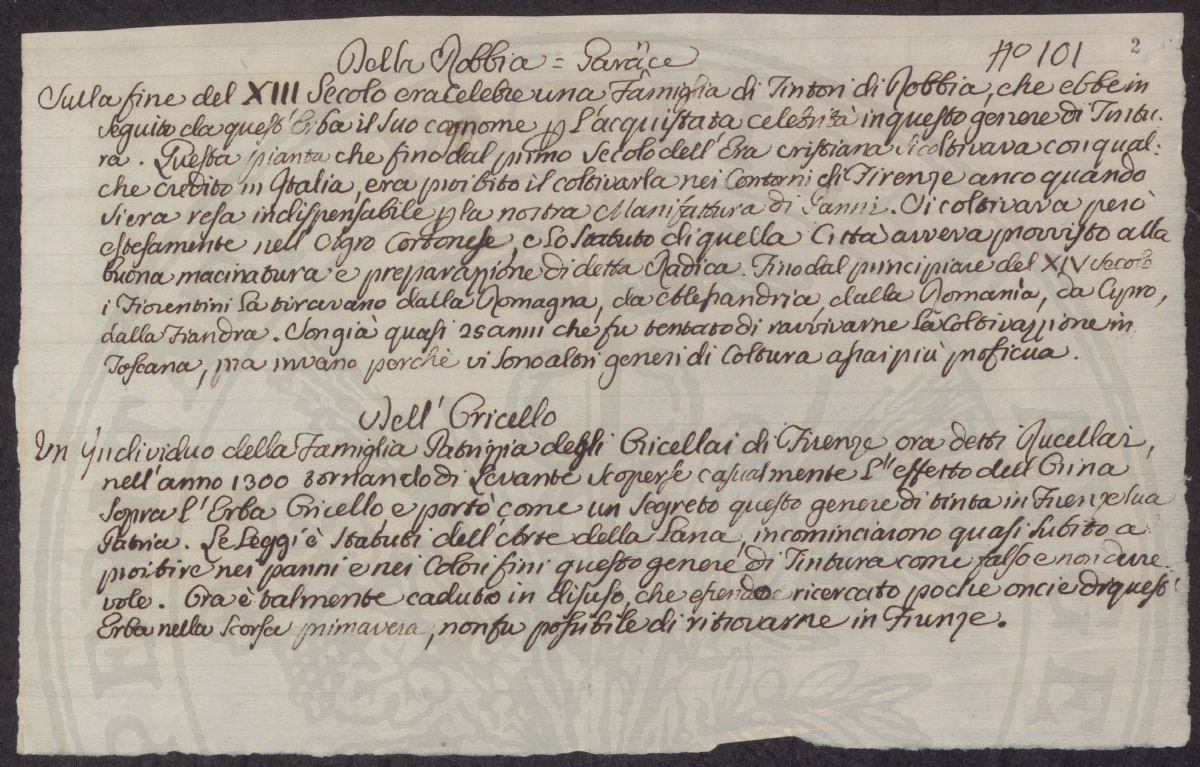 Della Robbia = Garäce
No 101
2
Sulla fine del XIII Secolo era celebre una Famiglia di Tintori di Robbia, che ebbe in
seguito da quest'Erba il suo cognome p l'acquistata celebrità in questo genere di Tintu-
ra. Questa pianta che fino dal primo secolo dell'Era cristiana si coltivava con qual:
che credito in Italia, era proibito il coltivarla nei Contorni di Firenze anco quando
si era resa indispensabile p la nostra Manifattura di Panni. Si coltivava però
estesamente nell'Agro Cortonese, e lo Statuto di quella Città avveva provvisto alla
buona macinatura e preparazione di detta Radica. Fino dal principiare del XIV Secolo
i Fiorentini la tiravano dalla Romagna, da Alessandria, dalla Romanìa, da Cipro,
dalla Fiandra. Son già quasi 25 anni che fu tentato di ravvivarne la Coltivazione in
Toscana, ma invano perchè vi sono altri generi di Coltura assai più proficua.
Dell' Oricello
Un Individuo della Famiglia Patrizia degli Oricellai di Firenze ora detti Rucellai,
nell'anno 1300 tornando di Levante scoperse casualmente l'effetto dell'Orina
sopra l'Erba Oricello e portò come un segreto questo genere di tinta in Firenze sua
Patria. Le Leggi è Statuti dell'Arte della Lana, incominciarono quasi subito a
proibire nei panni e nei Colori fini questo genere di Tintura come falso e non dure-
vole. Ora è talmente caduto in disuso, che essendo ricercato poche oncie di quest'
Erba nella scorsa primavera, non fu possibile di ritrovarne in Firenze.